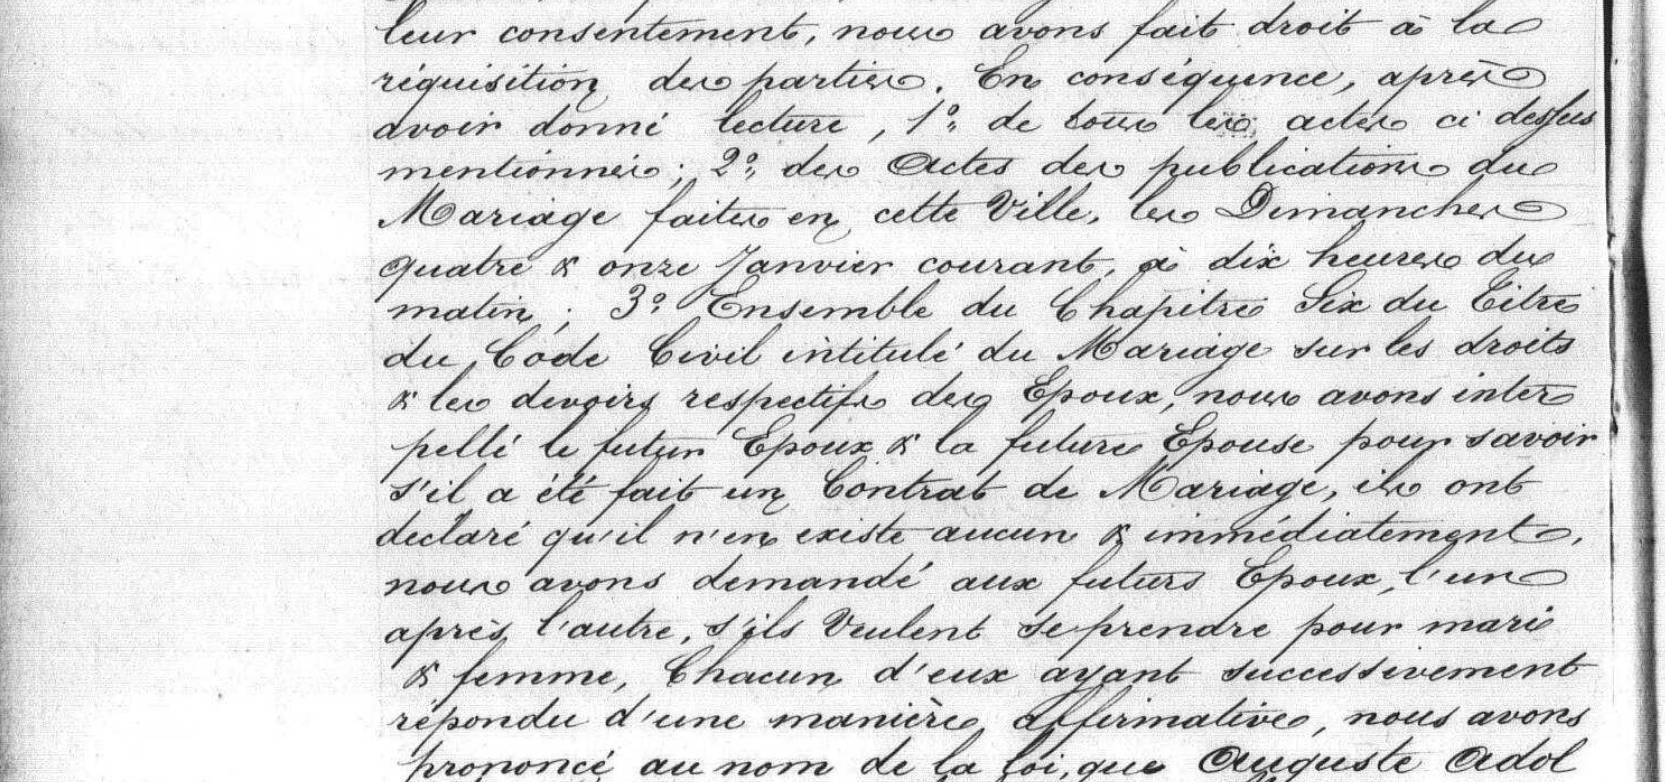 leur consentement, nous avons fait droit à la
réquisition des parties. En conséquence, après
avoir donné lecture, 1° de tous les actes ci dessus
mentionnés; 2° des Actes des publications du
Mariage faites en cette Ville, les Dimanches
quatre & onze Janvier courant, à dix heures du
matin; 3° Ensemble du Chapitre Six du Titre
du Code Civil intitulé du Mariage sur les droits
& les devoirs respectifs des Epoux, nous avons inter
pellé le futur Epoux & la future Epouse pour savoir
s'il a été fait un Contrat de Mariage, ils ont
déclaré qu'il n'en existe aucun & immédiatement,
nous avons demandé aux futurs Epoux, l'un
après l'autre, s'ils veulent se prendre pour mari
& femme, Chacun d'eux ayant successivement
répondu d'une manière affirmative, nous avons
prononcé au nom de la loi, que Auguste Adol